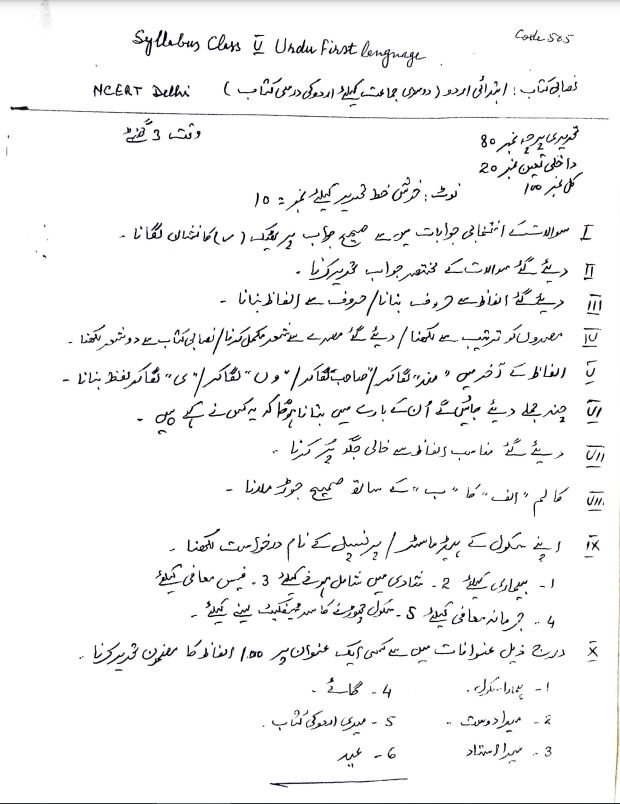 Code 505
Syllabus Class V Urdu First lenguage
نصابی کتاب : ابتدائی اردو ( دوسری جماعت کیلئے اردو کی درسی کتاب ) NCERT Delhi
تحریری پرچہ نمبر 80 وقت 3 گھنٹے
داخلی تعین نمبر 20
کل نمبر 100
نوٹ : خوش خط تحریر کیلئے نمبر = 10
I سوالات کے انتخابی جوابات میں سے صحیح جواب پر ٹِک (✓) کا نشان لگانا ۔
II دیئے گئے سوالات کے مختصر جواب تحریر کرنا ۔
III دیئے گئے الفاظ سے حروف بنانا / حروف سے الفاظ بنانا ۔
IV مصرعوں کو ترتیب سے لکھنا / دیئے گئے مصرعے سے شعر مکمل کرنا / نصابی کتاب سے دو شعر لکھنا ۔
V الفاظ کے آخر میں "مند" لگا کر / "صاحب" لگا کر / "وں" لگا کر / "ی" لگا کر لفظ بنانا ۔
VI چند جملے دیئے جائیں گے اُن کے بارے میں بتانا ہوگا کہ یہ کس نے کہے ہیں ۔
VII دیئے گئے مناسب الفاظ سے خالی جگہ پُر کرنا ۔
VIII کالم "الف" کا "ب" کے ساتھ صحیح جوڑ ملانا ۔
IX اپنے سکول کے ہیڈ ماسٹر / پرنسپل کے نام درخواست لکھنا ۔
1- بیماری کیلئے 2- شادی میں شامل ہونے کیلئے 3- فیس معافی کیلئے
4- جرمانہ معافی کیلئے 5- سکول چھوڑنے کا سرٹیفکیٹ لینے کیلئے ۔
X درج ذیل عنوانات میں سے کسی ایک عنوان پر 100 الفاظ کا مضمون تحریر کرنا ۔
1- ہمارا سکول ۔ 4- گائے ۔
2- میرا دوست ۔ 5- میری اردو کی کتاب ۔
3- میرا استاد 6- عید